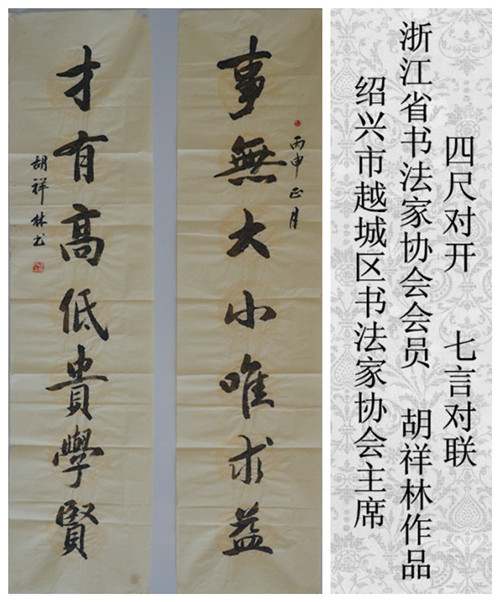 四尺对开 七言对联
浙江省书法家协会会员 胡祥林作品
绍兴市越城区书法家协会主席
事無大小唯求益
丙申正月
才有高低貴學賢
胡祥林书